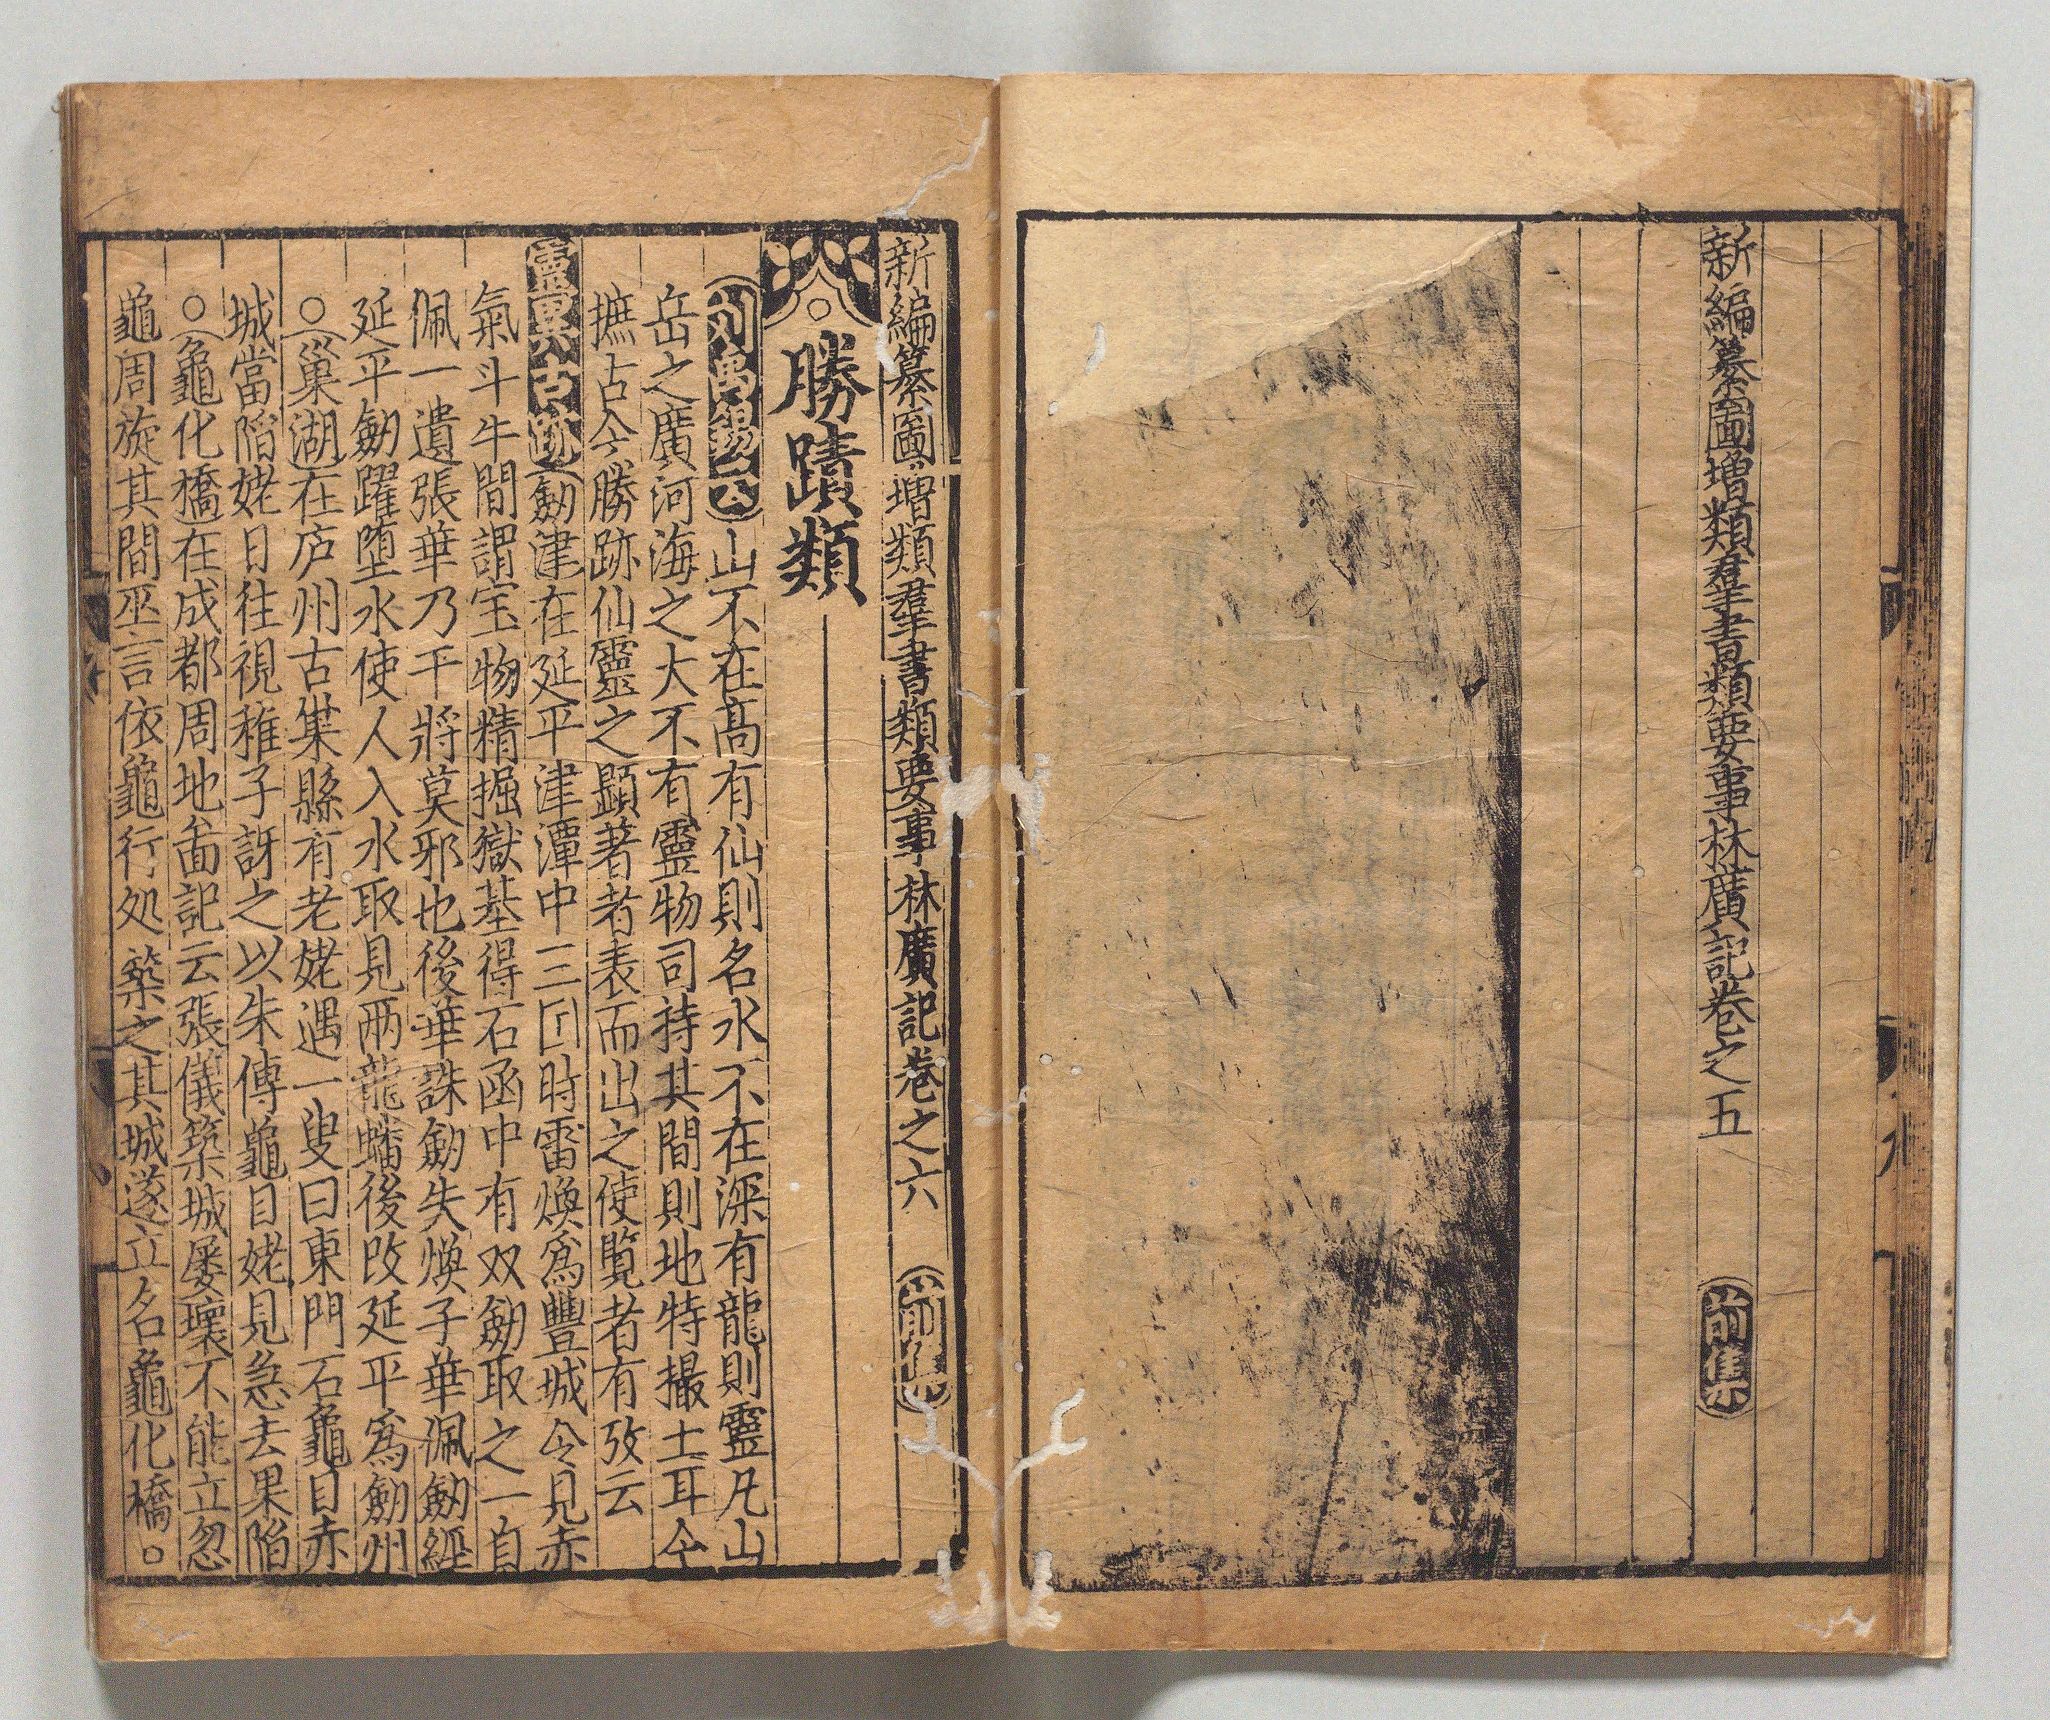 新編纂圖增類羣書類要事林廣記卷之五 前集
新編纂圖增類羣書類要事林廣記卷之六 前集
勝蹟類
刘禹錫云山不在高有仙則名水不在深有龍則靈凡山
岳之廣河海之大不有靈物司持其間則地特撮土耳今
摭古今勝跡仙靈之顯著者表而出之使覽者有攷云
靈異古跡 劒津在延平津潭中三囙时雷煥爲豐城令見赤
氣斗牛間謂宝物精掘獄基得石函中有双劒取之一自
佩一遺張華乃干將莫邪也後華誅劒失煥子華佩劒經
延平劒躍墮水使人入水取見两龍蟠後改延平爲劒州
○巢湖在庐州古巢縣有老姥遇一叟曰東門石龜目赤
城當陷姥日往視稚子訝之以朱傅龜目姥見急去果陷
○龜化橋在成都周地畜記云張儀築城屡壞不能立忽
龜周旋其間巫言依龜行处築之其城遂立名龜化橋○